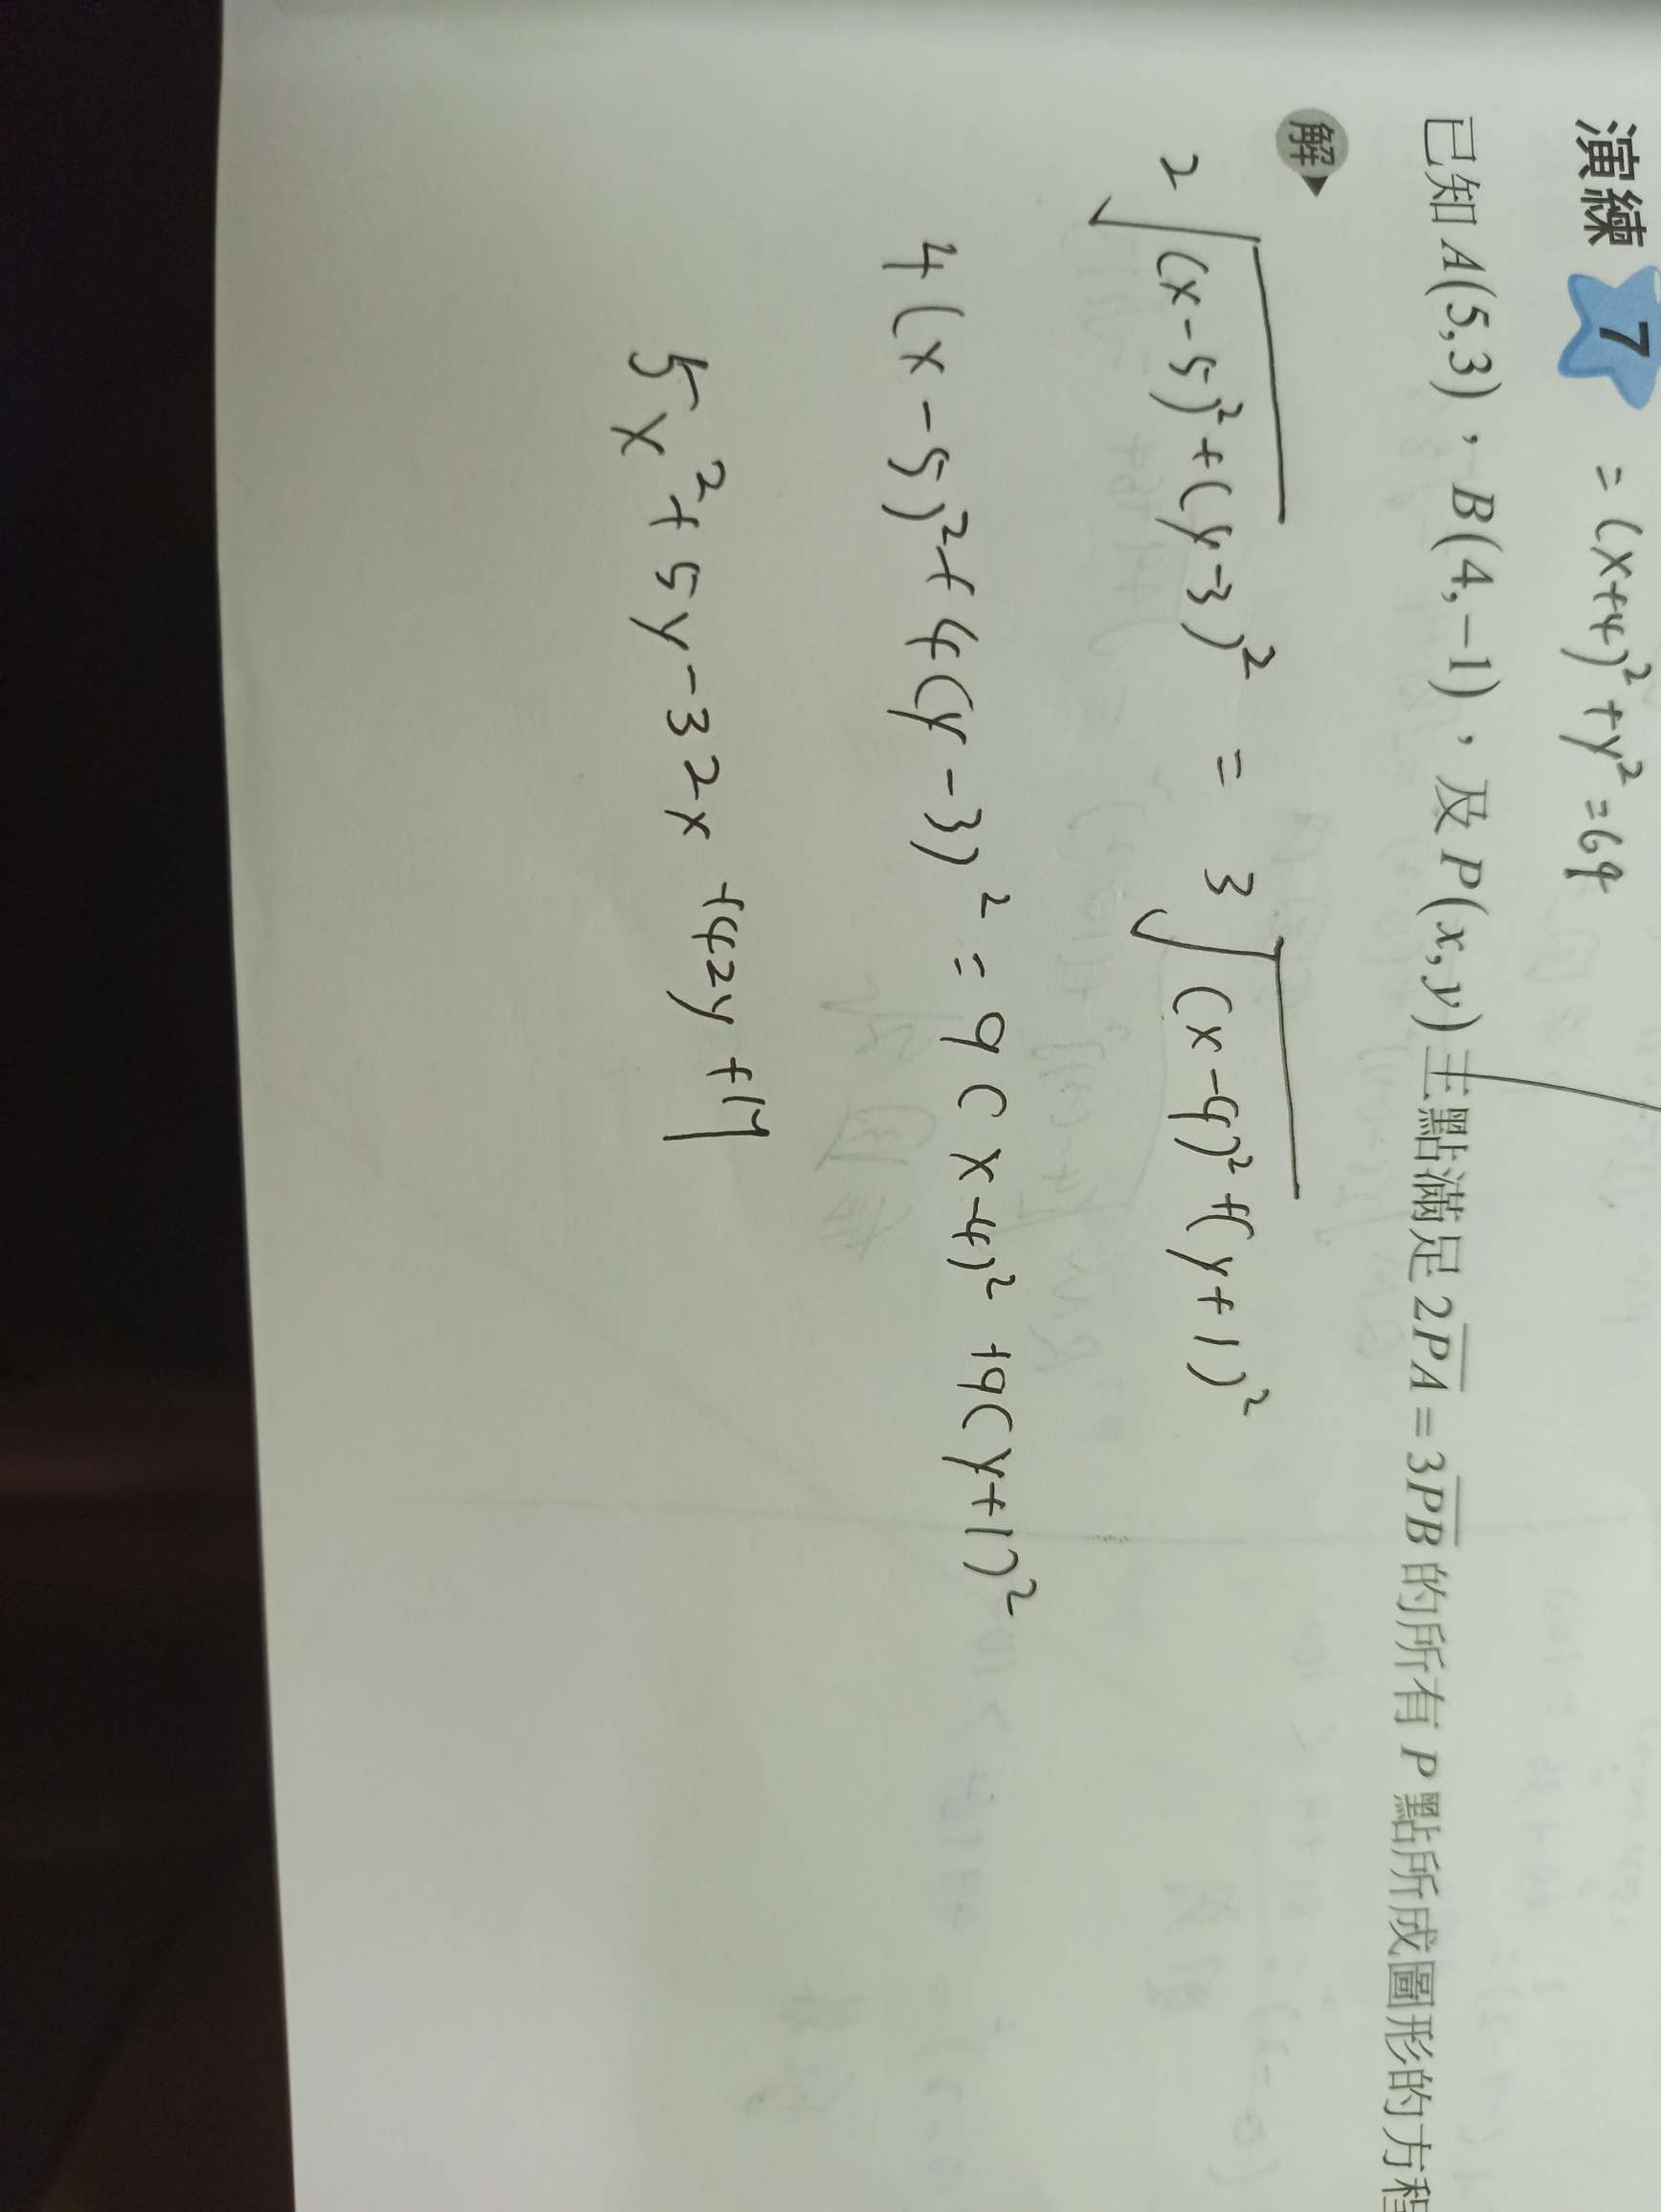 = (x+4)²+y²=64
演練 7
已知 A(5,3),B(4,-1),及 P(x,y) 三點滿足 2PA = 3PB 的所有 P 點所成圖形的方程
解
2√(x-5)²+(y-3)² = 3√(x-4)²+(y+1)²
4(x-5)²+4(y-3)² = 9(x-4)²+9(y+1)²
5x²+5y-32x+42y+17